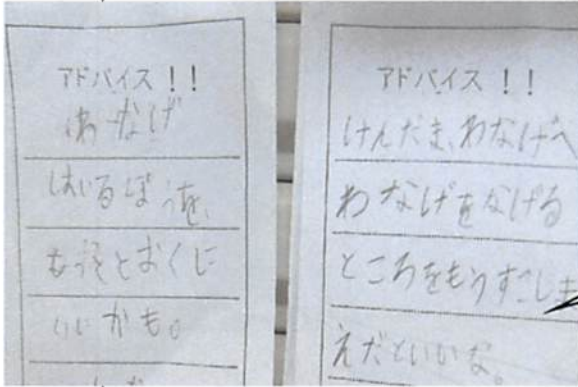 アドバイス!!
わなげ
はいるぼうを、
もっとおくに
いいかも。
アドバイス!!
けんだま、わなげへ
わなげをなげる
ところをもうすこしま
えだといいな。